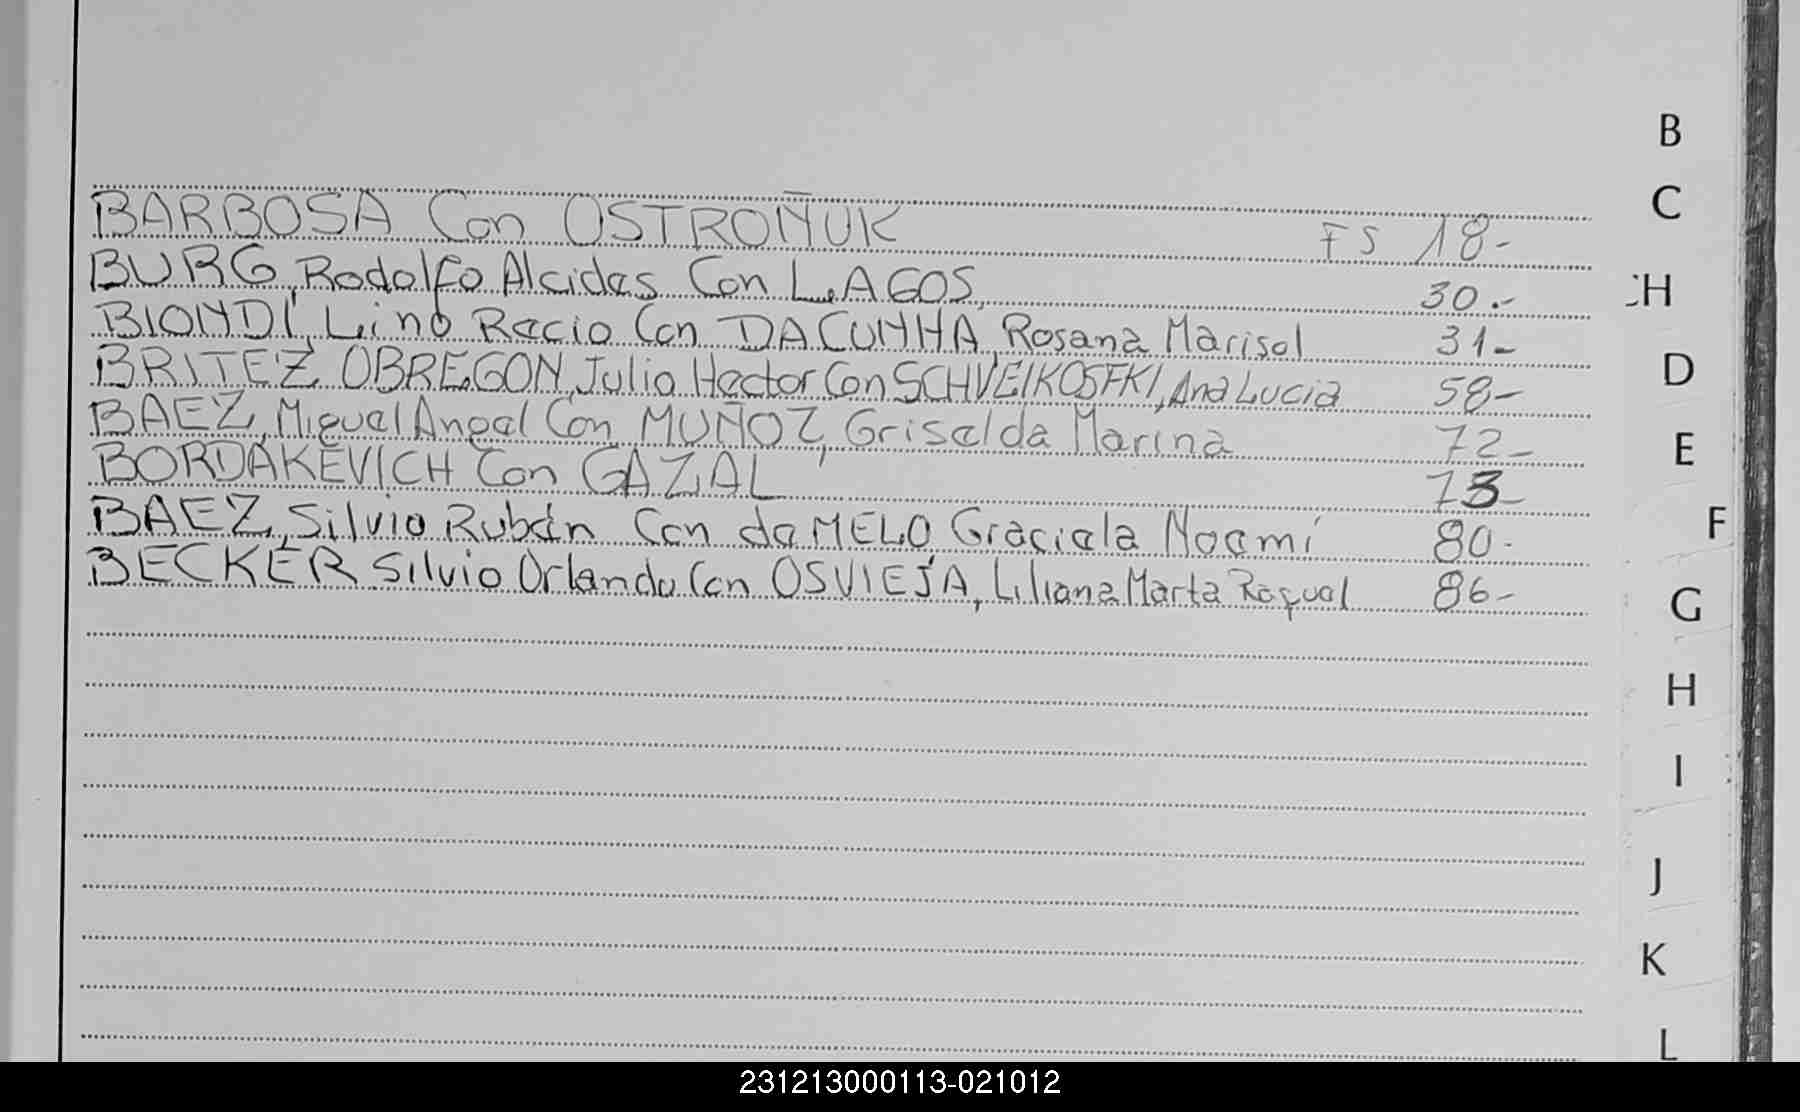 B
C
BARBOSA Con OSTROÑUK FS 18-
BURG, Rodolfo Alcides Con LAGOS, 30.-
H
BIONDI, Lino Recio Con DA CUNHA, Rosana Marisol 31-
D
BRITEZ OBREGON, Julio Hector Con SCHVEIKOSFKI, Ana Lucia 58-
BAEZ, Miguel Angel Con MUÑOZ, Griselda Marina 72-
E
BORDAKEVICH Con GAZAL 73-
BAEZ, Silvio Rubén Con da MELO Graciela Noemí 80-
F
BECKER Silvio Orlando Con OSVIEJA, Liliana Marta Raquel 86-
G
H
I
J
K
L
231213000113-021012